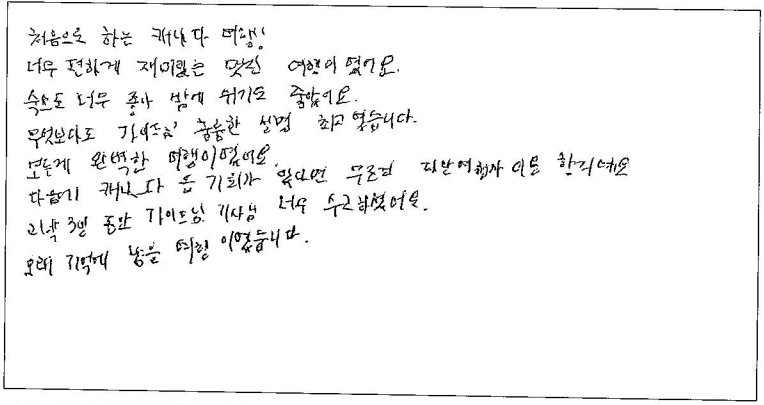 처음으로 하는 캐나다 여행!
너무 편하게 재미있는 멋진 여행이 었어요.
숙소도 너무 좋아 밤에 쉬기도 좋았어요.
무엇보다도 가이드님 훌륭한 설명 최고 였습니다.
모든게 완벽한 여행이였어요.
다음에 캐나다 올 기회가 있다면 무조건 여행사 이용 할거예요
2박 3일 동안 가이드님 기사님 너무 수고하셨어요.
오래 기억에 남을 여행 이었습니다.